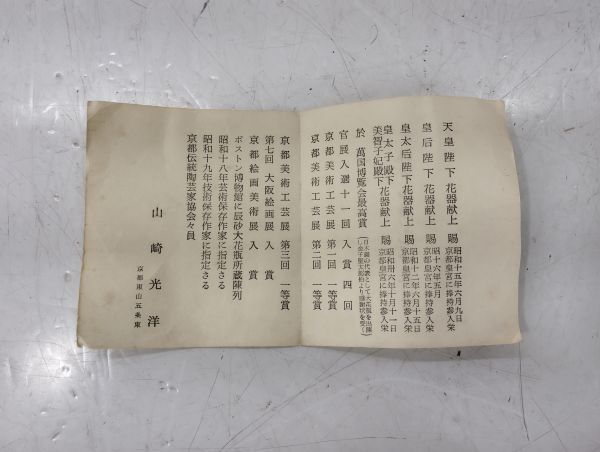 天皇陛下 花器献上 賜 昭和十五年六月九日
京都皇宮に捧持参入栄
皇后陛下 花器献上 賜 昭十六年五月
京都皇宮に捧持参入栄
皇太后陛下 花器献上 賜 昭和十二年六月十五日
京都皇宮に捧持参入栄
皇太子殿下
美智子妃殿下 花器献上 賜 昭和卅六年十月十一日
京都皇宮に捧持参入栄
於 萬国博覧会最高賞
官展入選十一回 入賞四回
京都美術工芸展 第一回 一等賞
京都美術工芸展 第二回 一等賞
京都美術工芸展 第三回 一等賞
第七回 大阪絵画展 入賞
京都絵画美術展 入賞
ボストン博物館に辰砂大花瓶所蔵陳列
昭和十八年芸術保存作家に指定さる
昭和十九年技術保存作家に指定さる
京都伝統陶芸家協会々員
山崎光洋
京都東山五条東